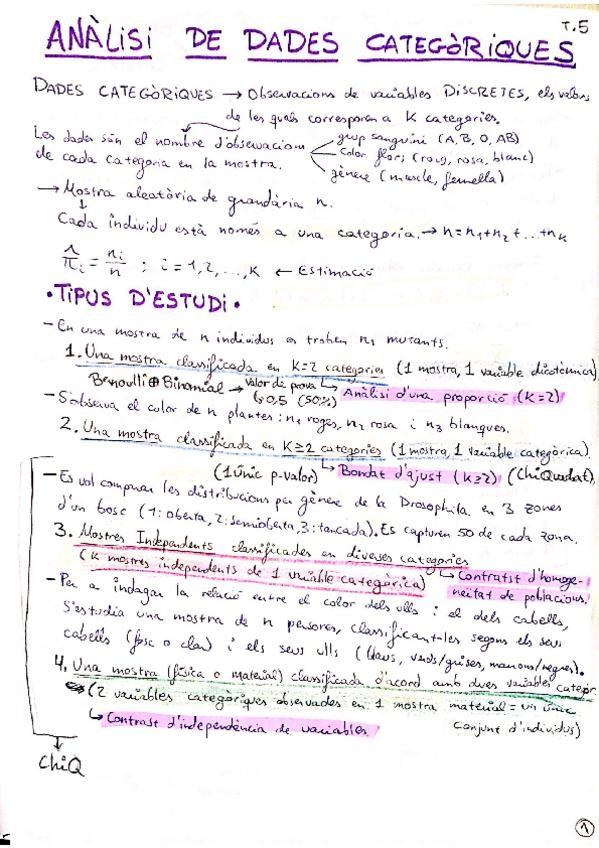 T.5
ANÀLISI DE DADES CATEGÒRIQUES
DADES CATEGÒRIQUES → Observacions de variables DISCRETES, els valors
de les quals corresponen a K categories.
Les dades són el nombre d'observacions
de cada categoria en la mostra.
grup sanguini (A, B, O, AB)
Color flors (roig, rosa, blanc)
gènere (mascle, femella)
→ Mostra aleatòria de grandària n.
Cada individu està només a una categoria. → n=n1+n2+...+nk
π̂i = ni/n ; i=1,2,...,K ← Estimació
• TIPUS D'ESTUDI •
- En una mostra de n individus es troben n1 mutants.
1. Una mostra classificada en K=2 categories (1 mostra, 1 variable dicotòmica)
Bernoulli ⊕ Binomial → Valor de prova ↳ Anàlisi d'una proporció (K=2)
↳ 0,5 (50%)
- S'observa el color de n plantes: n1 roges, n2 rosa i n3 blanques.
2. Una mostra classificada en K≥2 categories (1 mostra, 1 variable categòrica).
(1 únic p-valor) ↳ Bondat d'ajust (K≥2) (ChiQuadrat)
- Es vol comparar les distribucions per gènere de la Drosophila en 3 zones
d'un bosc (1: oberta, 2: semioberta, 3: tancada). Es capturen 50 de cada zona.
3. Mostres Independents classificades en diverses categories
(K mostres independents de 1 variable categòrica) ↳ Contrast d'homoge-
neïtat de poblacions.
- Per a indagar la relació entre el color dels ulls i el dels cabells,
S'estudia una mostra de n persones, classificant-les segons els seus
cabells (fosc o clar) i els seus ulls (blaus, verds/grisos, marrons/negres).
4. Una mostra (física o material) classificada d'acord amb dues variables categòr.
(2 variables categòriques observades en 1 mostra material = un únic
conjunt d'individus)
↳ Contrast d'independència de variables.
ChiQ
1